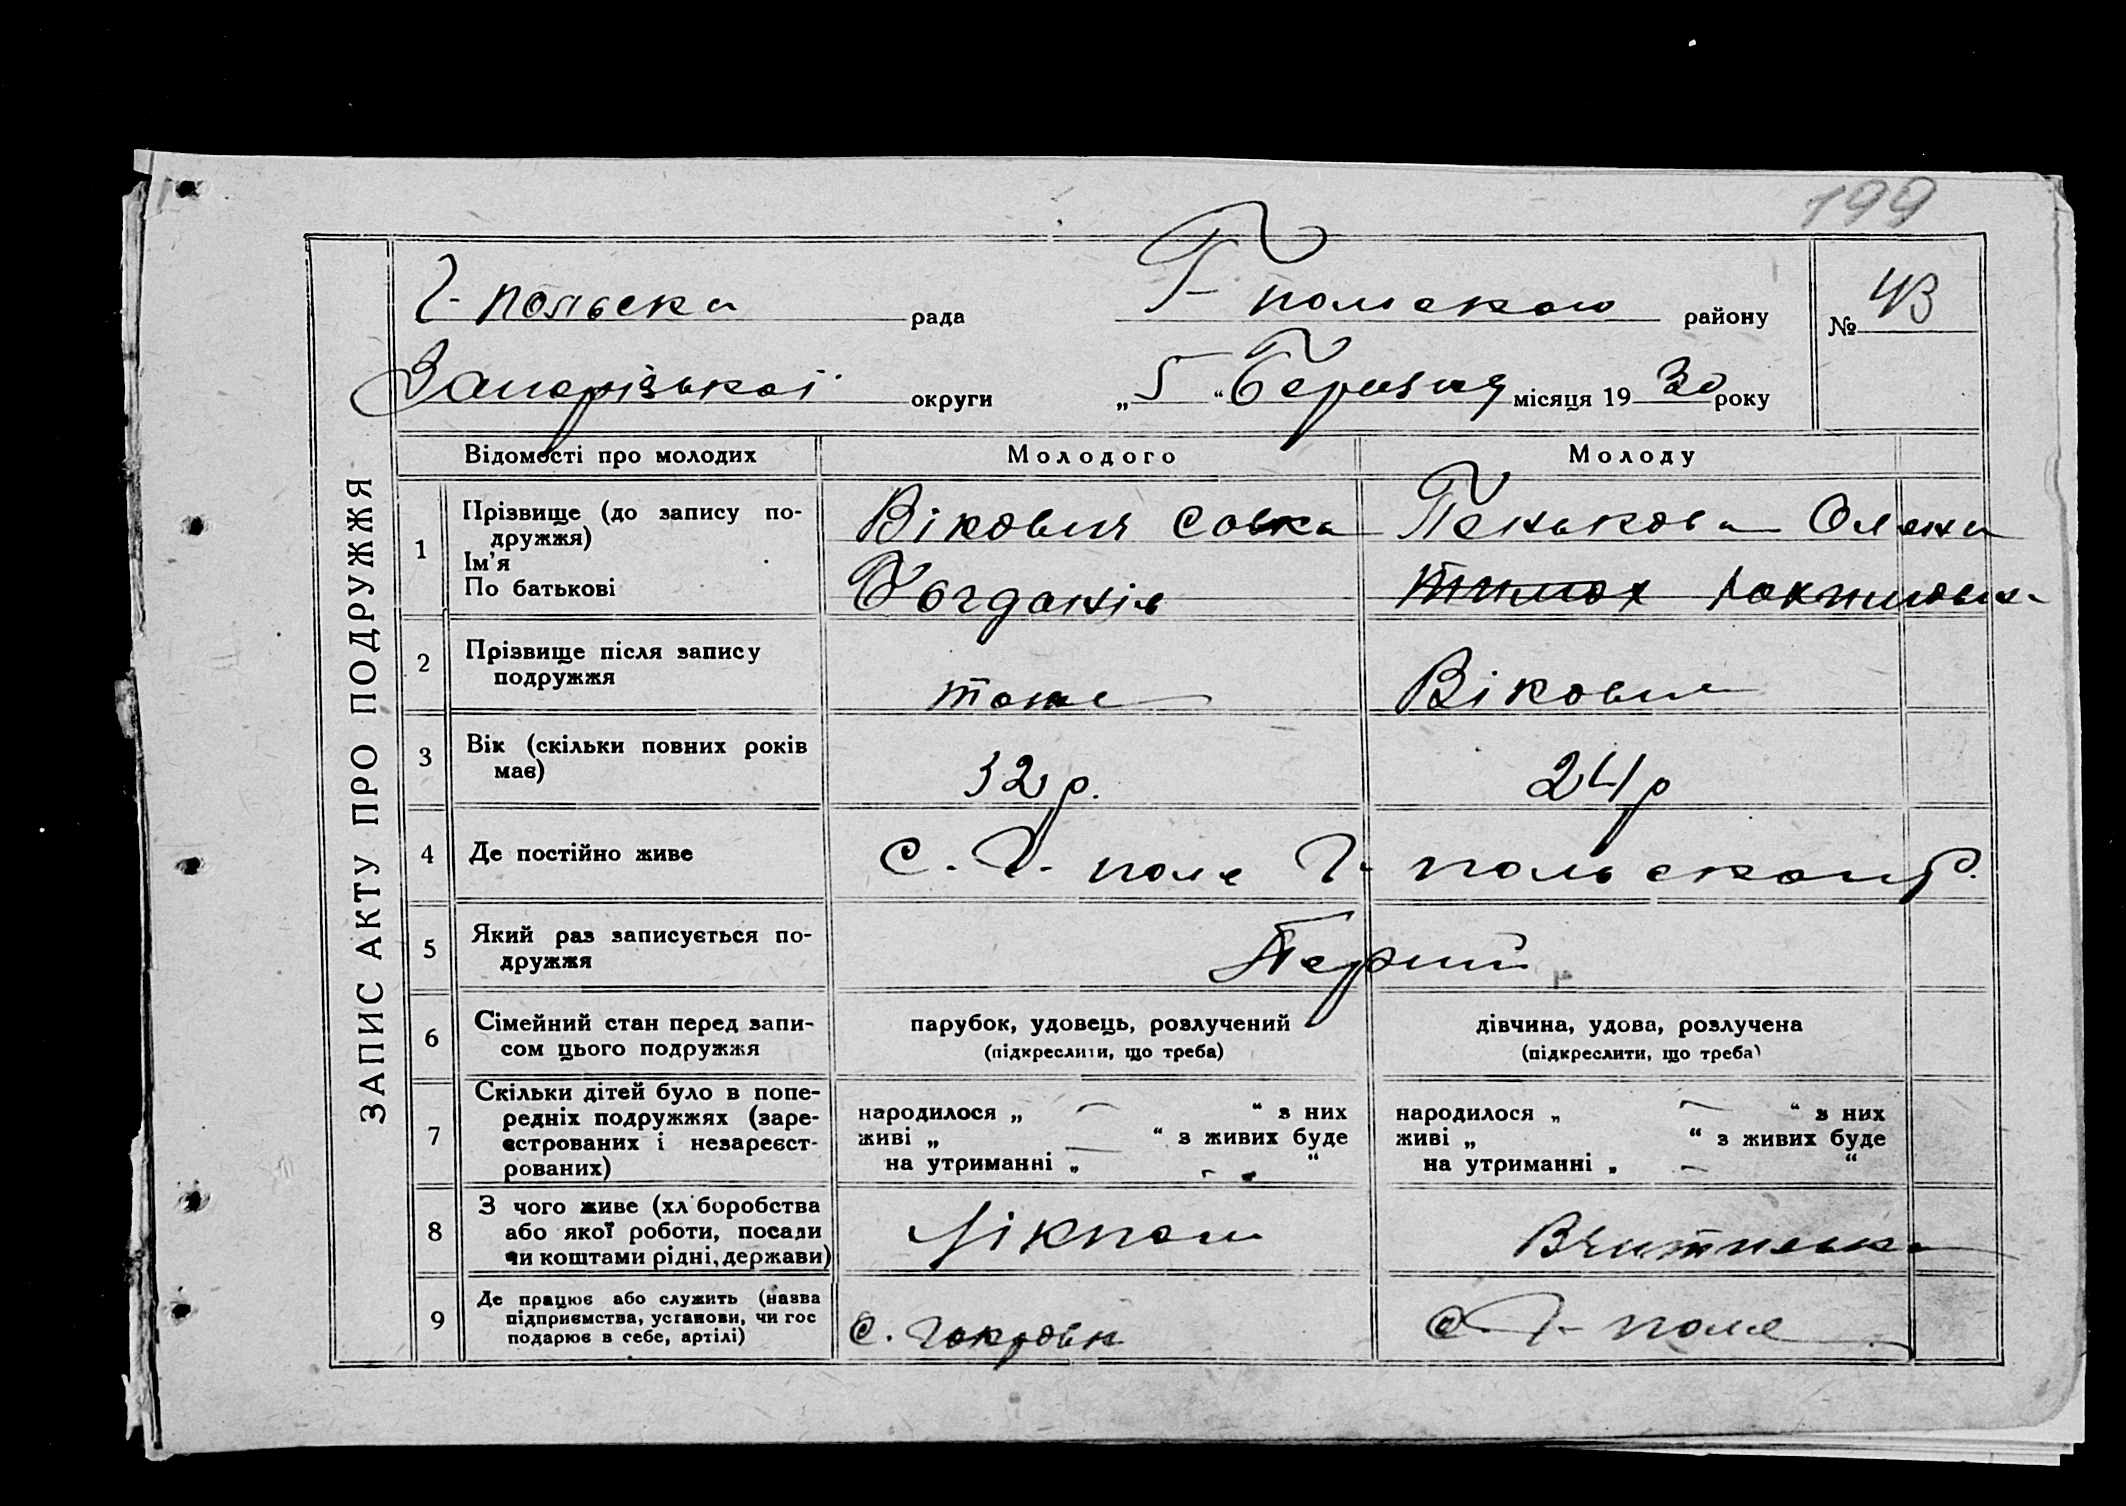 199
Г-польска рада Г-польского району № 43
Запорізької округи „5“ Березня місяця 1930 року
ЗАПИС АКТУ ПРО ПОДРУЖЖЯ
Відомості про молодих Молодого Молоду
1 Прізвище (до запису по-
дружжя)
Ім'я
По батькові
Віковня Совка
Богданів
Пенькова Олена
2 Прізвище після запису
подружжя
тоже
Віковня
3 Вік (скільки повних років
має)
32 р.
24 р
4 Де постійно живе
С. Г- поле Г- польского р.
5 Який раз записується по-
дружжя
Перший
6 Сімейний стан перед запи-
сом цього подружжя
парубок, удовець, розлучений
(підкреслити, що треба)
дівчина, удова, розлучена
(підкреслити, що треба)
7 Скільки дітей було в попе-
редніх подружжях (заре-
єстрованих і незареєст-
рованих)
народилося „ — “ з них
живі „ — “ з живих буде
на утриманні „ - “
народилося „ — “ з них
живі „ “ з живих буде
на утриманні „ — “
8 З чого живе (хліборобства
або якої роботи, посади
чи коштами рідні, держави)
Лікпом
Вчителька
9 Де працює або служить (назва
підприємства, установи, чи гос
подарює в себе, артілі)
С. Г- поле